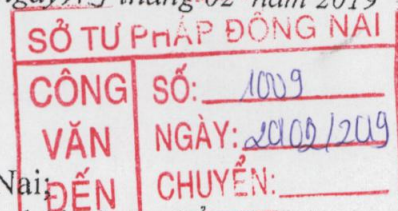 tháng 02 năm 2019
SỞ TƯ PHÁP ĐỒNG NAI
CÔNG VĂN ĐẾN
SỐ: 1009
NGÀY: 20/02/2019
CHUYỂN:
Nai;